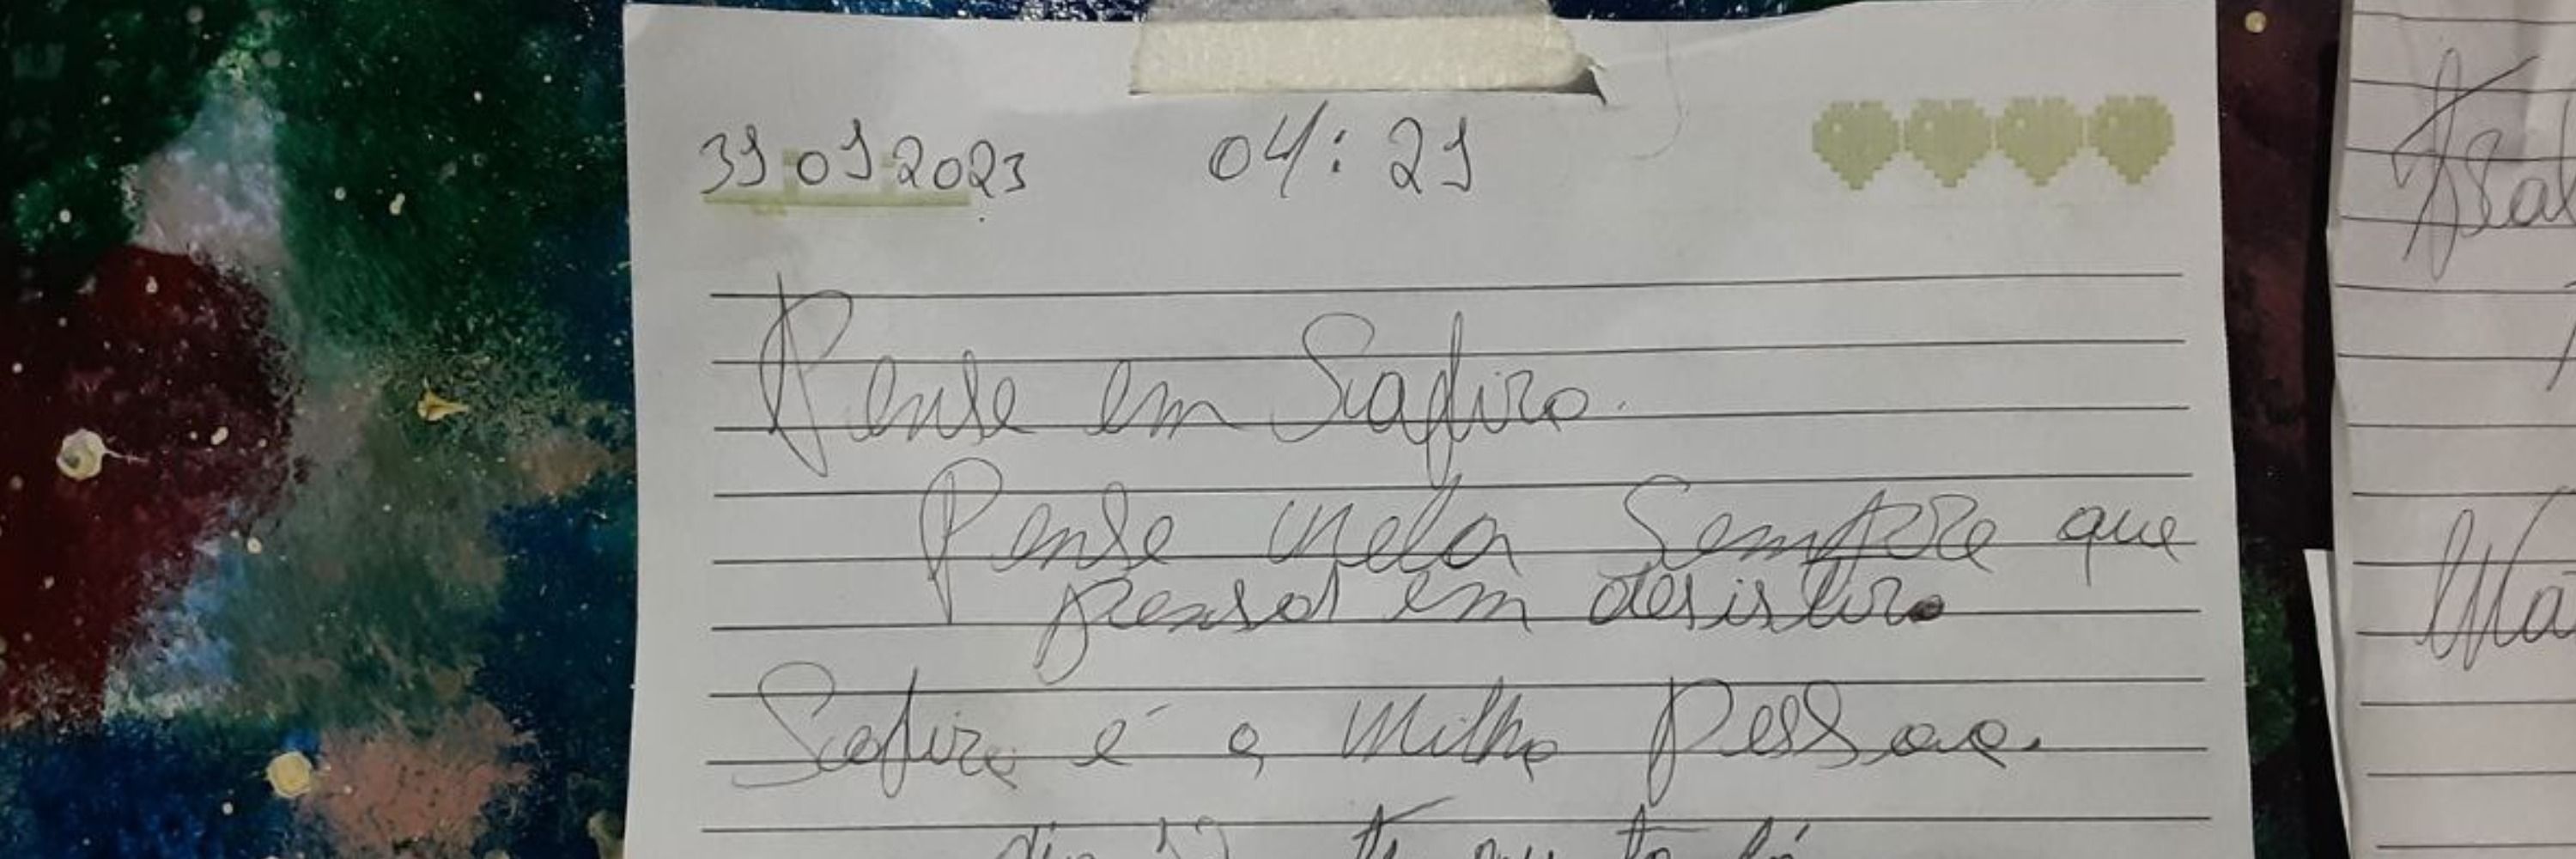 31.01.2023 04:21
Pense em Safira.
Pense nela sempre que
pensar em desistir.
Safira é a minha pessoa.